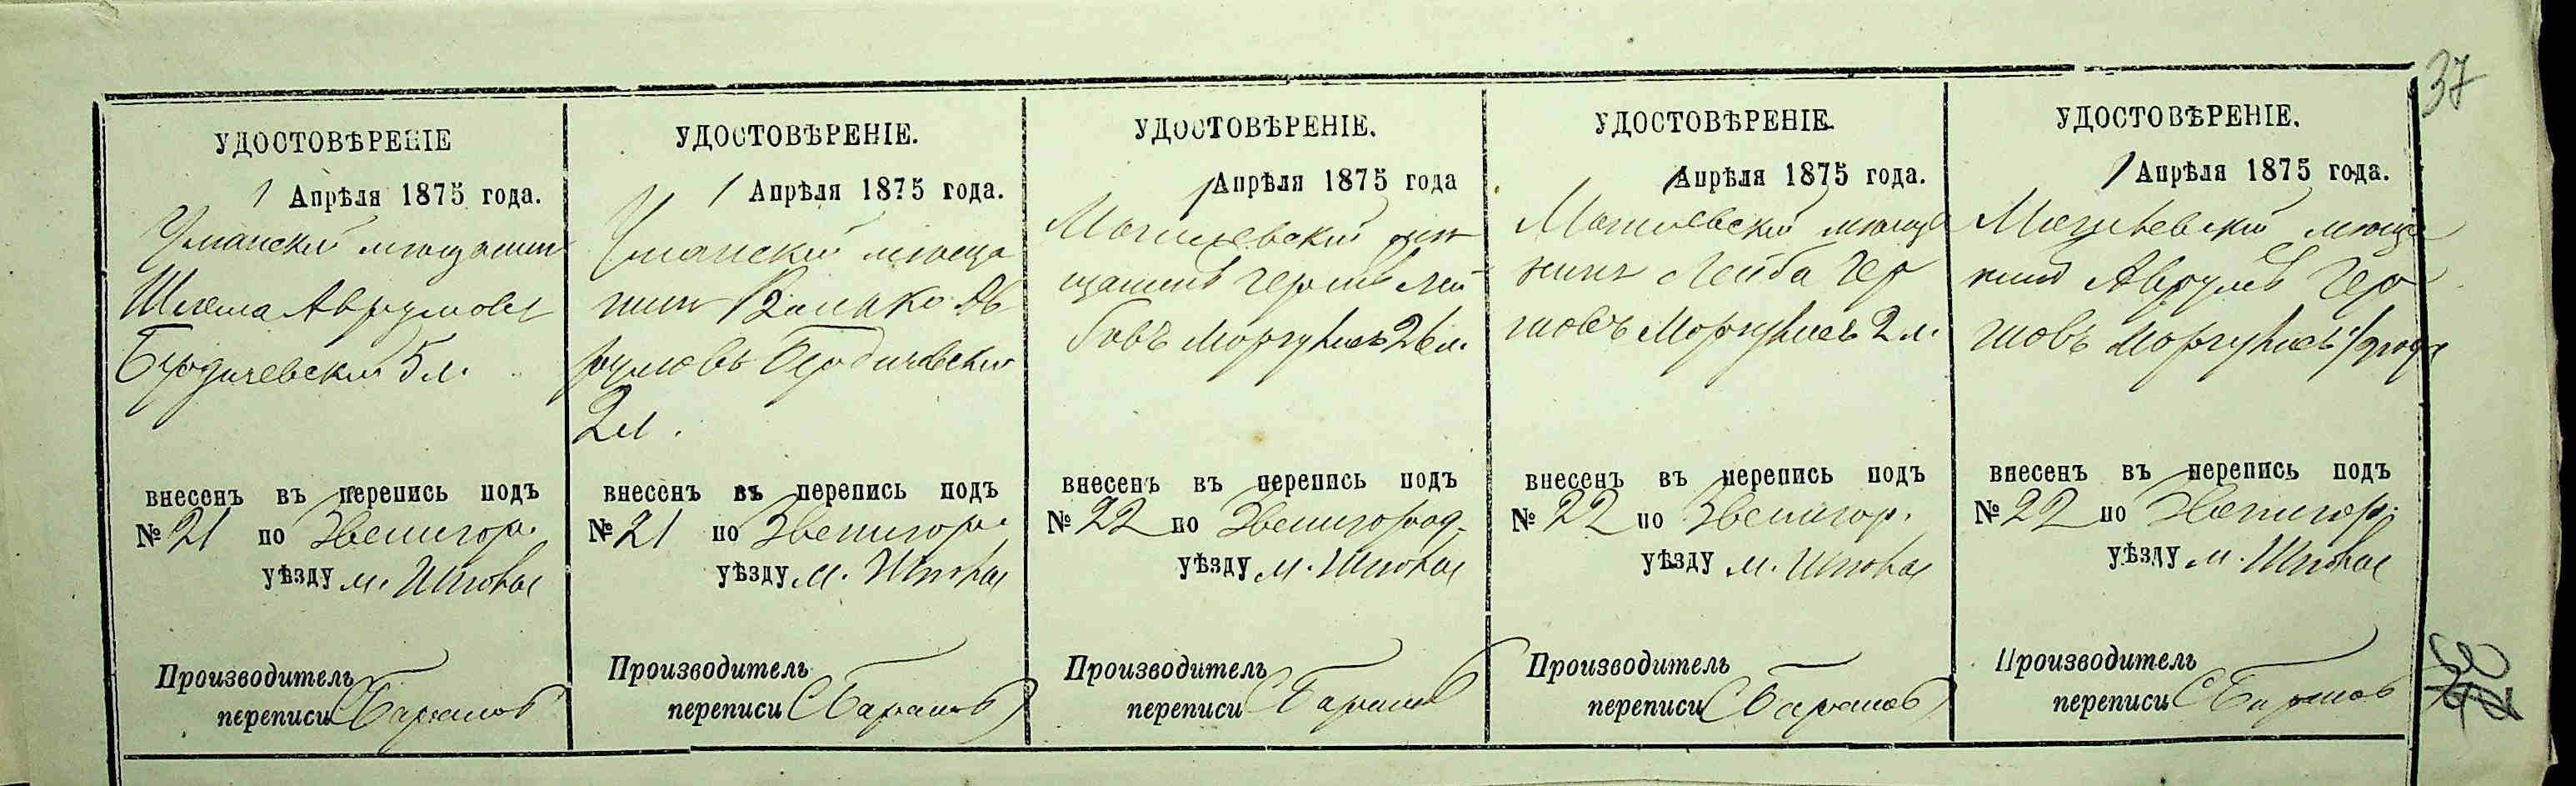 37
УДОСТОВѢРЕНІЕ
1 Апрѣля 1875 года.
Уманскій мѣщанин
Шлема Аврумовъ
Бердичевскій 5 л.
внесенъ въ перепись подъ
№ 21 по Звенигор.
уѣзду м. Шпола
Производитель
переписи СБаранов
УДОСТОВѢРЕНІЕ.
1 Апрѣля 1875 года.
Уманскій мѣща
нин Ав
румовъ Бердичевскій
2 л.
внесенъ въ перепись подъ
№ 21 по Звенигор.
уѣзду м. Шпола
Производитель
переписи СБаранов
УДОСТОВѢРЕНІЕ.
1 Апрѣля 1875 года
Могилевскій мѣ
щанинъ Гершъ Лей
бовъ Моргулисъ 26 л.
внесенъ въ перепись подъ
№ 22 по Звенигород.
уѣзду м. Шпола
Производитель
переписи СБаранов
УДОСТОВѢРЕНІЕ.
1 Апрѣля 1875 года.
Могилевскій мѣща
нинъ Лейба Гер
шовъ Моргулисъ 2 л.
внесенъ въ перепись подъ
№ 22 по Звенигор.
уѣзду м. Шпола
Производитель
переписи СБаранов
УДОСТОВѢРЕНІЕ.
1 Апрѣля 1875 года.
Могилевскій мѣща
нинъ Аврумъ Гер
шовъ Моргулисъ 1/2 года
внесенъ въ перепись подъ
№ 22 по Звенигор.
уѣзду м. Шпола
Производитель
переписи СБаранов